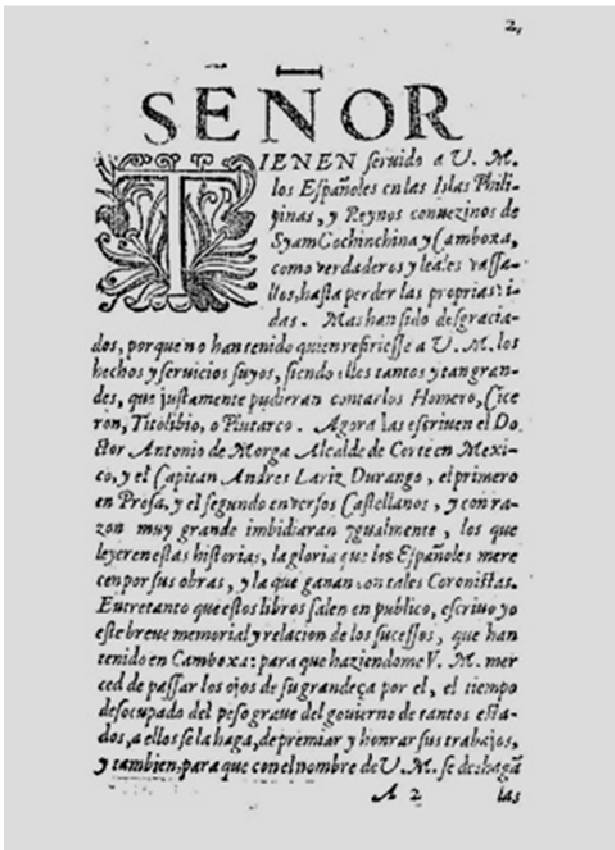 2,
SEÑOR
TIENEN ſeruido a V. M.
los Eſpañoles en las Islas Phili-
pinas, y Reynos conuezinos de
Syam Cochinchina y Camboxa,
como verdaderos y leales vaſſa-
llos, haſta perder las proprias vi-
das. Mas han ſido deſgracia-
dos, porque no han tenido quien refirieſſe a V. M. los
hechos y ſeruicios ſuyos, ſiendo ellos tantos y tan gran-
des, que juſtamente pudieran contarlos Homero, Cice
ron, Titolibio, o Plutarco. Agora las eſcriuen el Do
ctor Antonio de Morga Alcalde de Corte en Mexi-
co, y el Capitan Andres Lariz Durango, el primero
en Proſa, y el ſegundo en verſos Caſtellanos, y con ra-
zon muy grande imbidiaran ygualmente, los que
leyeren eſtas hiſtorias, la gloria que los Eſpañoles mere
cen por ſus obras, y la que ganan con tales Coroniſtas.
Entretanto que eſtos libros ſalen en publico, eſcriuo yo
eſte breue memorial y relacion de los ſuceſſos, que han
tenido en Camboxa: para que haziendome V. M. mer
ced de paſſar los ojos de ſu grandeça por el, el tiempo
deſocupado del peſo graue del gouierno de tantos eſta-
dos, a ellos ſe la haga, de premiar y honrar ſus trabajos,
y tambien, para que con el nombre de V. M. ſe deshagã
A 2 las